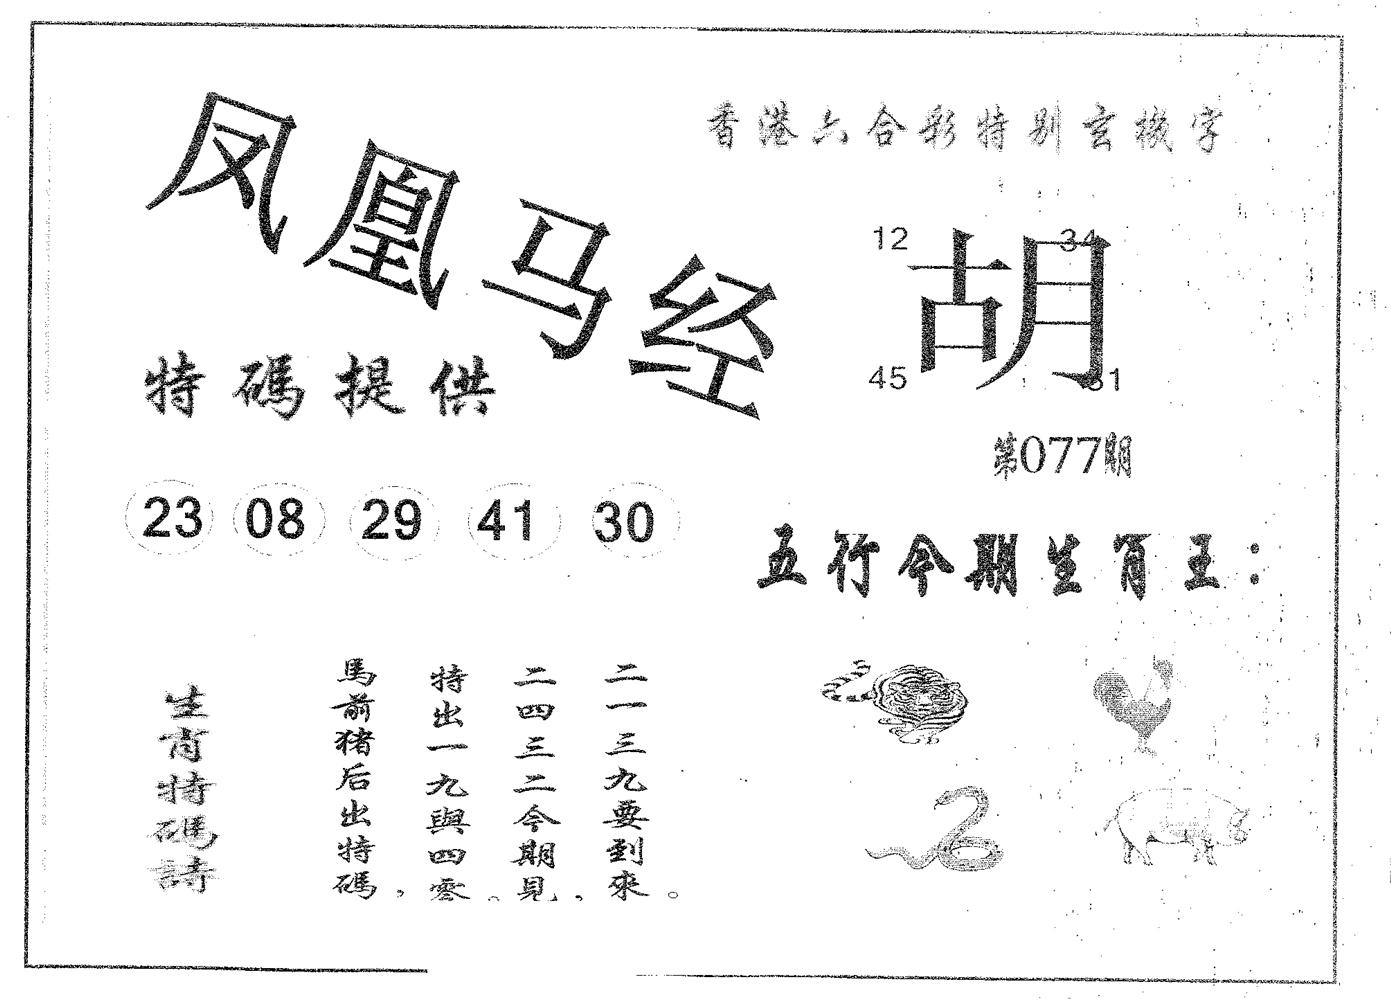 凤凰马经
香港六合彩特别玄機字
12 34
胡
45 31
第077期
特碼提供
23 08 29 41 30
五行今期生肖王：
生肖特碼詩
馬前猪后出特碼，
特出一九與四零。
二四三二今期見，
二一三九要到來。